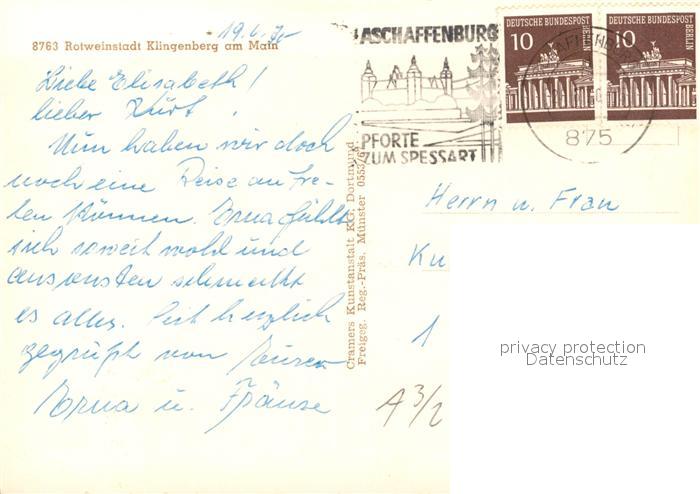 19.6.70
8763 Rotweinstadt Klingenberg am Main
Liebe Elisabeth!
lieber Kurt.
Nun haben wir doch
noch eine Reise antre-
ten können. Erna fühlt
sich soweit wohl und
ansonsten schmeckt
es alles. Seit herzlich
gegrüßt von Euren
Erna u. Fränze
Cramers Kunstanstalt KG. Dortmund
Freigeg. Reg.-Präs. Münster
ASCHAFFENBURG
PFORTE
ZUM SPESSART
DEUTSCHE BUNDESPOST BERLIN
10
DEUTSCHE BUNDESPOST BERLIN
10
875
Herrn u. Frau
Ku
1
A 3/2
privacy protection
Datenschutz